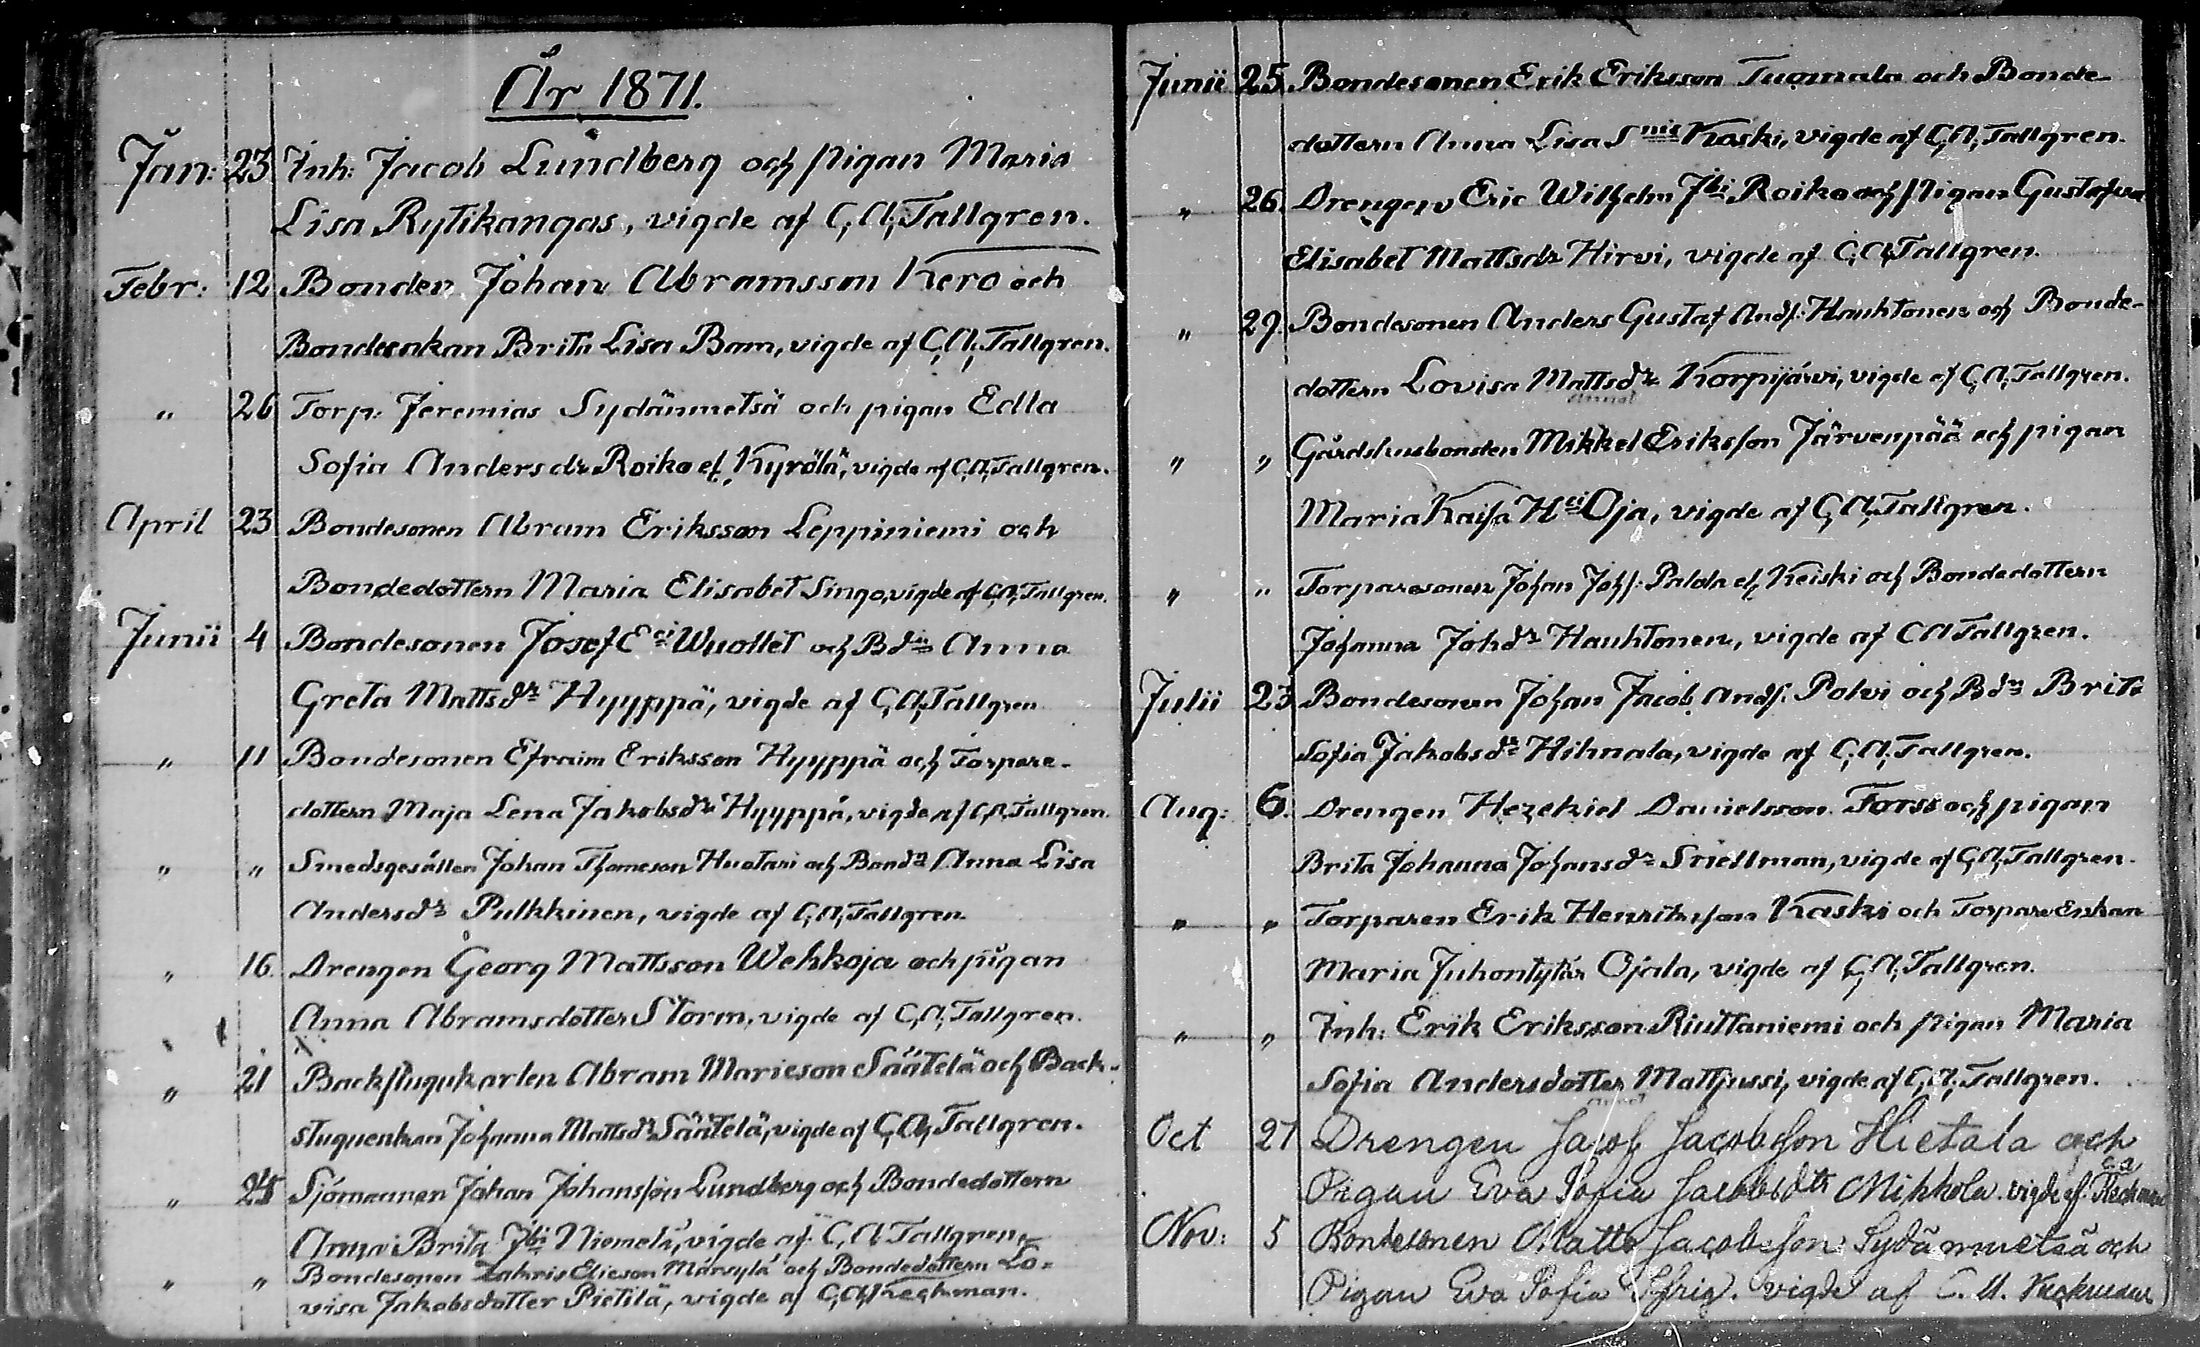 År 1871.
Jan: 23 Inh: Jacob Lundberg och pigan Maria
Lisa Rytikangas, vigde af C, A, Tallgren.
Febr: 12 Bonden Johan Abramsson Kero och
Bondeenkan Brita Lisa Bam, vigde af C, A, Tallgren.
" 26 Torp: Jeremias Sydänmetsä och pigan Edla
Sofia Andersdr Roiko el, Kyrölä, vigde af C, A, Tallgren.
April 23 Bondesonen Abram Eriksson Leppiniemi och
Bondedottern Maria Elisabet Lingo, vigde af C, A, Tallgren.
Junii 4 Bondesonen Josef Eci Wuollet och Bdn Anna
Greta Mattsdr Hyyppä, vigde af C, A, Tallgren
" 11 Bondesonen Efraim Eriksson Hyyppä och Torpare-
dottern Maja Lena Jakobsdr Hyyppä, vigde af C, A, Tallgren.
" " Smedsgesällen Johan Thomeson Huotari och Bondn Anna Lisa
Andersdr Pulkkinen, vigde af C, A, Tallgren
" 16. Drengen Georg Mattsson Wehkoja och pigan
Anna Abramsdotter Storm, vigde af C, A, Tallgren.
" 21 Backstugukarlen Abram Marieson Säätelä och Back-
stuguenkan Johanna Mattsdr Säätelä, vigde af C, A, Tallgren.
" 25 Sjömannen Johan Johansson Lundberg och Bondedottern
Anna Brita Jbi Niemelä, vigde af C, A Tallgren,
" " Bondesonen Zakris Elieson Märsylä och Bondedottern Lo-
visa Jakobsdotter Pietilä, vigde af C, A, Keckman.
Junii 25 Bondesonen Erik Eriksson Tuomala och Bonde-
dottern Anna Lisa Snis Koski, vigde af C, A, Tallgren.
" 26. Drengen Eric Wilhelm Jbi Roiko och pigan Gustafva
Elisabet Mattsdr Hirvi, vigde af C, A, Tallgren.
" 29. Bondesonen Anders Gustaf Ands: Hauhtonen och Bonde-
dottern Lovisa Mattsdr Korpijärvi, vigde af C, A, Tallgren.
" " Gårdshusbonden Mikkel Eriksson Järvenpää och pigan
Maria Kaisa Hci Oja, vigde af C, A, Tallgren.
" " Torparesonen Johan Johs: Palola el, Keiski och Bondedottern
Johanna Johdr Hauhtonen, vigde af C A Tallgren.
Julii 23 Bondesonen Johan Jacob Ands: Polvi och Bdn Brita
Sofia Jakobsdr Hihnala, vigde af C, A, Tallgren.
Aug: 6. Drengen Hezekiel Danielsson Forss och pigan
Brita Johanna Johansdr Snellman, vigde af C, A, Tallgren.
" " Torparen Erik Henriksson Kaski och Torpare Enkan
Maria Juhontytär Ojala, vigde af C, A, Tallgren.
" " Inh: Erik Eriksson Riuttaniemi och pigan Maria
Sofia Andersdotter Mattjussi, vigde af C, A, Tallgren.
Oct 27 Drengen Jacob Jacobsson Hietala och
Pigan Eva Sofia Jacobsdtr Mikkola. vigde af. C A Keckman
Nov: 5 Bondesonen Matts Jacobsson Sydänmetsä och
Pigan Eva Sofia vigde af C. A. Keckman